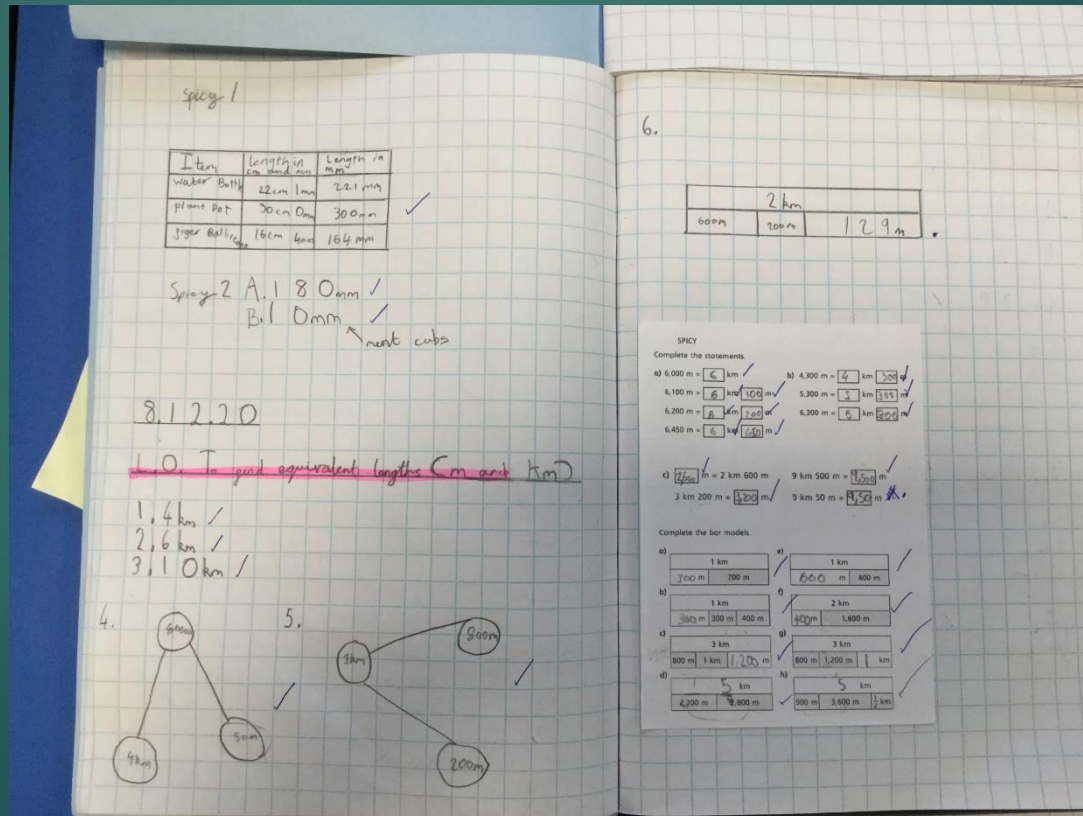 Spicy 1
Item | Length in cm and mm | Length in mm
water Bottle | 22cm 1mm | 221 mm
plant Pot | 30cm 0mm | 300mm
16cm 4mm | 164 mm
Spicy 2 A. 1 8 0mm
B. 1 0mm
cubs
8.12.20
L.O. To find equivalent lengths (m and km)
1, 4 km
2, 6 km
3, 10km
4.
4km
50m
5.
1km
800m
200m
6.
2 km
600m | 200m | 129m
SPICY
Complete the statements.
a) 6,000 m = 6 km
6,100 m = 6 km 100 m
6,200 m = 6 km 200 m
6,450 m = 6 km 450 m
b) 4,300 m = 4 km 300 m
5,300 m = 5 km 300 m
6,300 m = 6 km 300 m
c) 2,600 m = 2 km 600 m
3 km 200 m = 3,200 m
9 km 500 m = 9,500 m
9 km 50 m = 9,50 m
Complete the bar models.
a)
1 km
300 m | 700 m
b)
1 km
300m | 300 m | 400 m
c)
3 km
800 m | 1 km | 1,200 m
d)
5 km
2,200 m | 2,800 m
e)
1 km
600 m | 400 m
f)
2 km
400m | 1,600 m
g)
3 km
800 m | 1,200 m | 1 km
h)
5 km
900 m | 3,600 m | ½ km